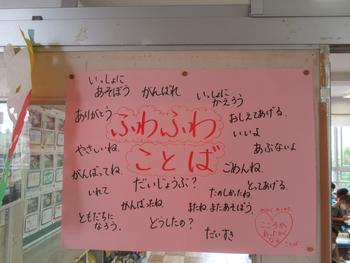 いっしょに
あそぼう
がんばれ
いっしょに
かえろう
ありがとう
ふわふわ
ことば
おしえてあげる。
いいよ
やさしいね。
あぶないよ
がんばってね。
だいじょうぶ?
ごめんね。
いれて
とってあげる。
がんばったね。
たのしかったね
またね。またあそぼう。
ともだちに
なろう。
どうしたの?
だいすき
こころが
あったかく
なる
ことば